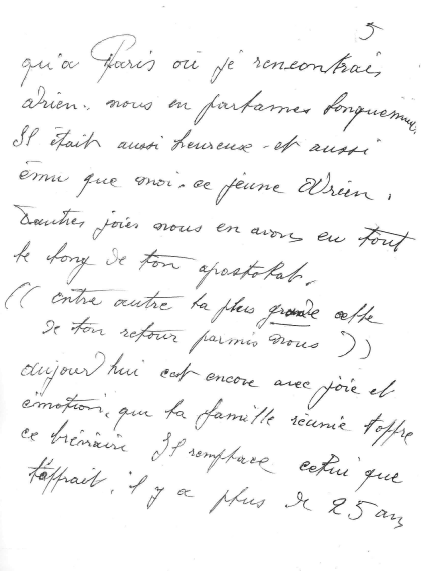 5
qu'a Paris où je rencontrais
Adrien. nous en partames longuement.
Il était aussi heureux et aussi
ému que moi. ce jeune Adrien.
D'autres joies nous en avons eu tout
le long de ton apostolat.
(( entre autre la plus grande celle
de ton retour parmis nous ))
aujourd'hui cest encore avec joie et
émotion, que ta famille réunie t'offre
ce bréviaire Il remplace celui que
t'offrait, il y a plus de 25 ans